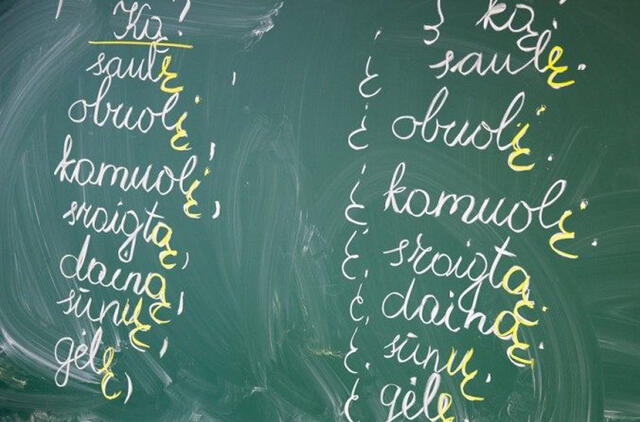 Ką?
saulę,
obuolį
kamuolį,
sraigtą,
dainą,
sūnų,
gėlę,
Į ką?
į saulę.
į obuolį.
į kamuolį.
į sraigtą.
į dainą.
į sūnų.
į gėlę.